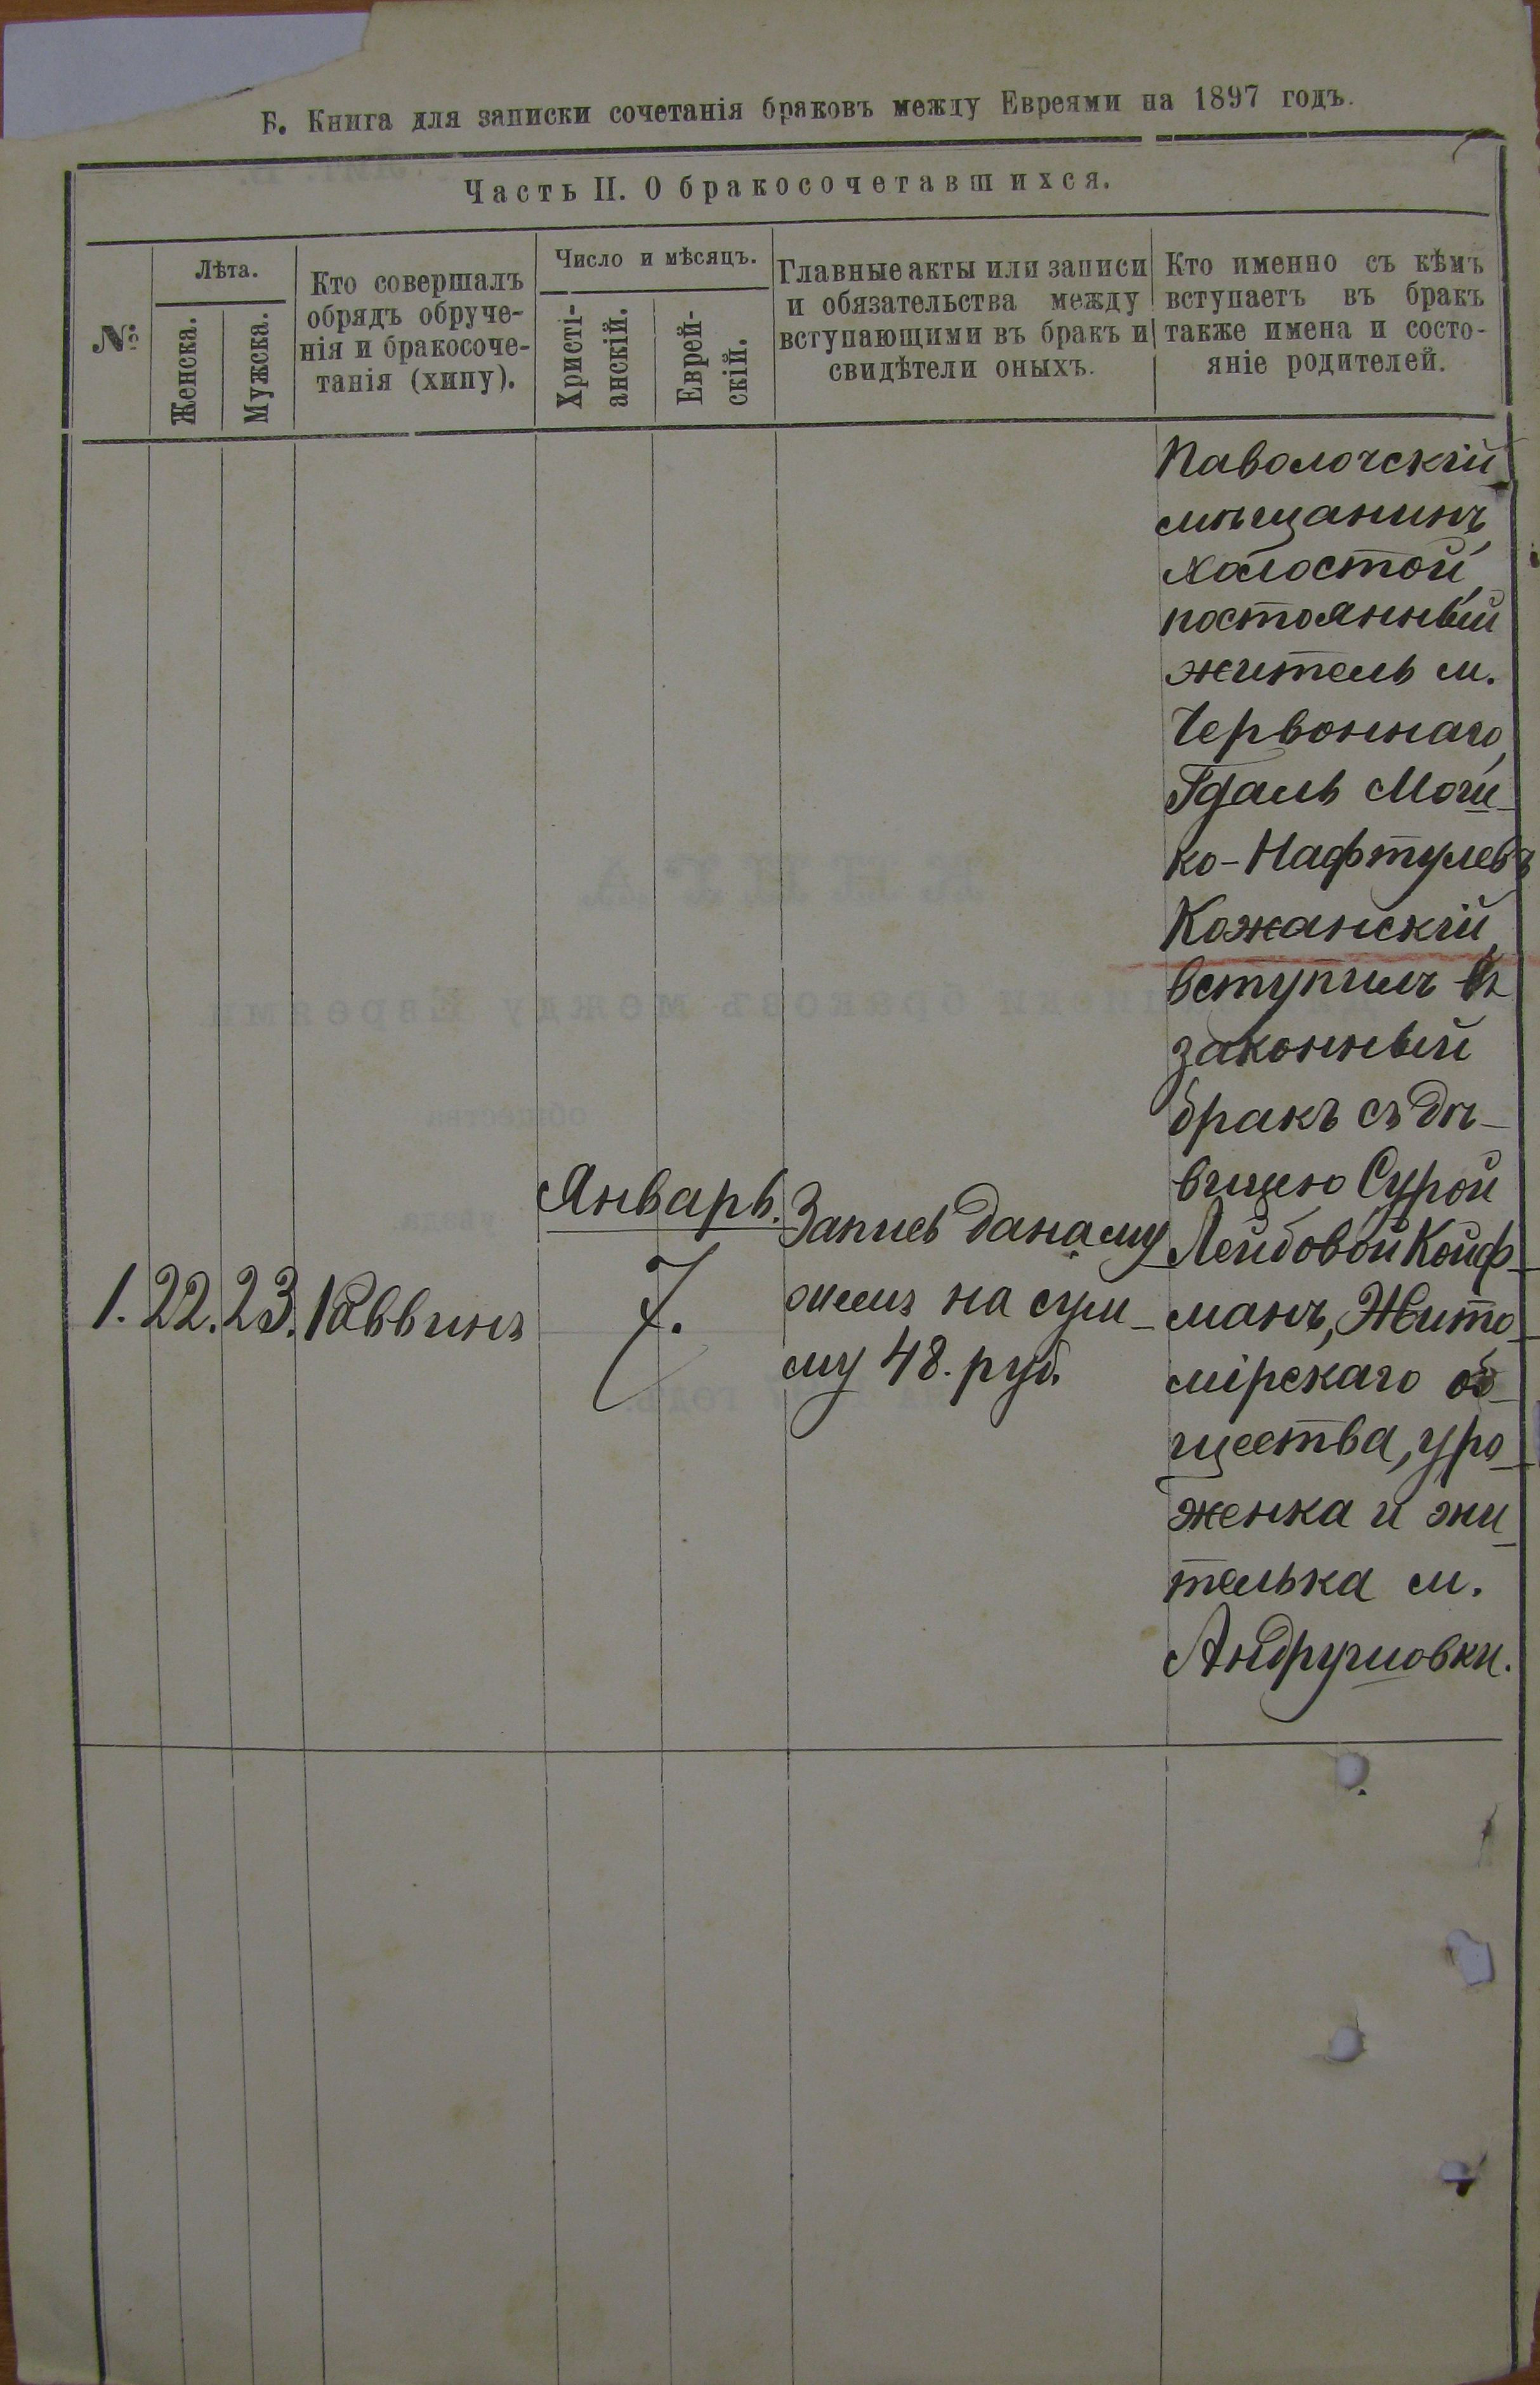 Б. Книга для записки сочетанія браковъ между Евреями на 1897 годъ.
Часть II. О бракосочетавшихся.
№
Лѣта.
Женска.
Мужска.
Кто совершалъ
обрядъ обруче-
нія и бракосоче-
танія (хипу).
Число и мѣсяцъ.
Христі-
анскій.
Еврей-
скій.
Главные акты или записи
и обязательства между
вступающими въ бракъ и
свидѣтели оныхъ.
Кто именно съ кѣмъ
вступаетъ въ бракъ
также имена и состо-
яніе родителей.
1.
22.
23.
Раввинъ
Январь.
7.
Запись дана му
жемъ на сум-
му 48. руб.
Паволочскій
мѣщанинъ,
холостой,
постоянный
житель м.
Червоннаго,
Гдаль Мош-
ко-Нафтулевъ
Кожанскій,
вступилъ въ
законный
бракъ съ дѣ-
вицею Сурой
Лейбовой Койф-
манъ, Жито-
мірскаго об-
щества, уро-
женка и жи-
телька м.
Андрушовки.